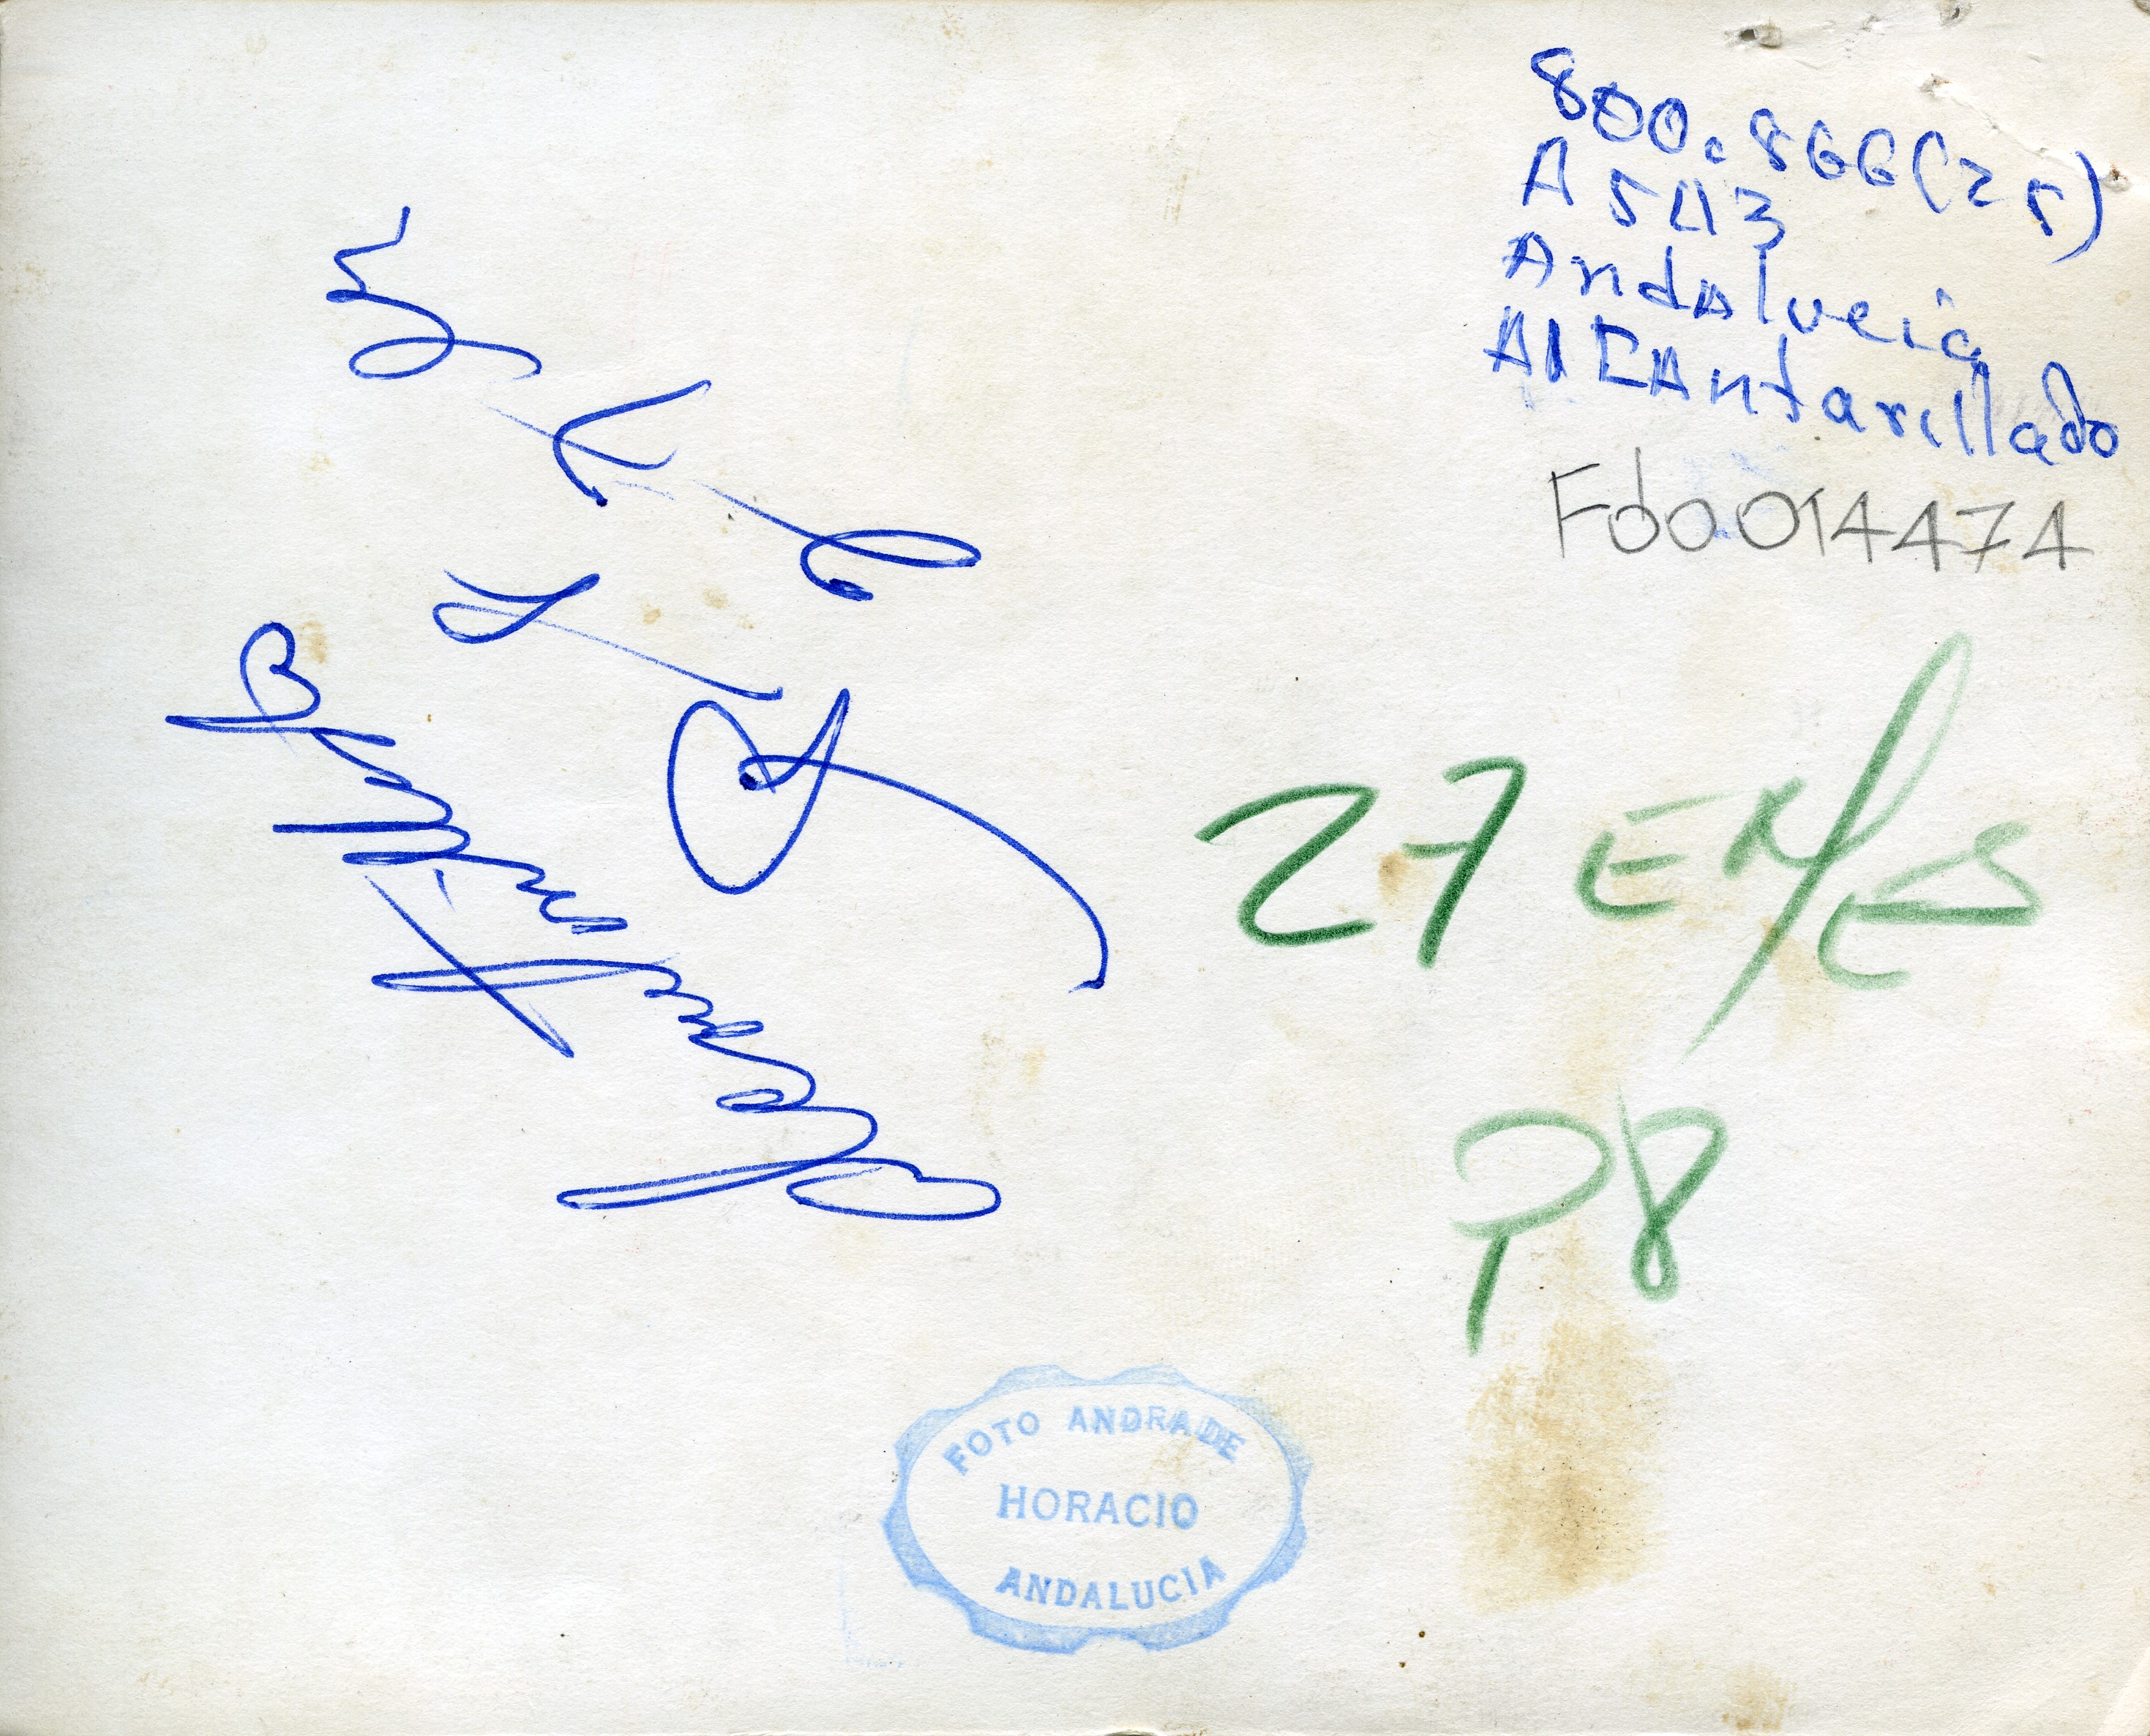 800.866(25)
A 503
Andalucia
AlCAntarillado
Fdo014474
Alcantarillado
27
FOTO ANDRADE
HORACIO
ANDALUCIA